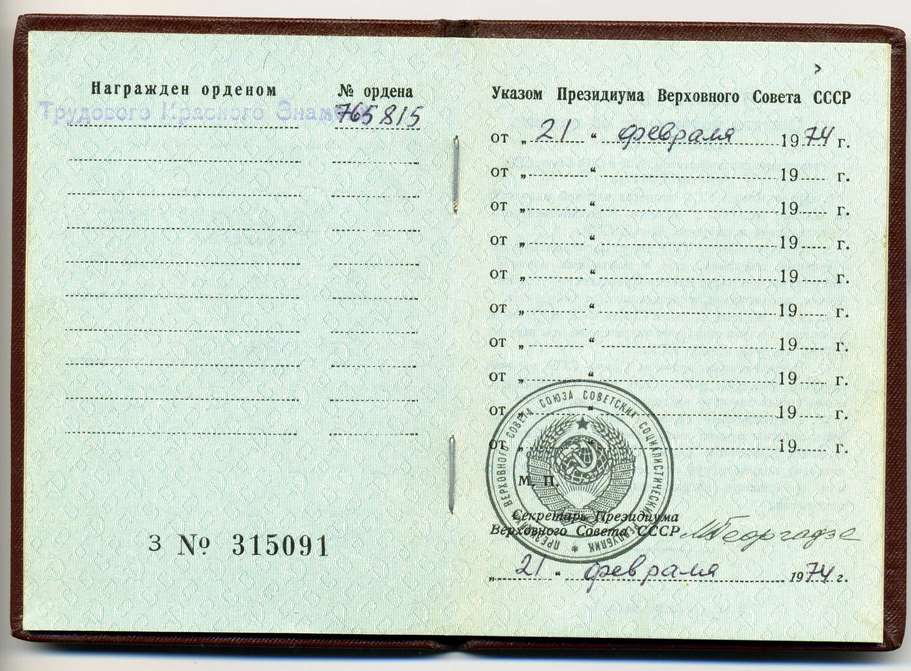 Награжден орденом № ордена
Трудового Красного Знамени 765815
З № 315091
Указом Президиума Верховного Совета СССР
от „ 21 “ февраля 1974 г.
от „ “ 19 г.
от „ “ 19 г.
от „ “ 19 г.
от „ “ 19 г.
от „ “ 19 г.
от „ “ 19 г.
от „ “ 19 г.
от „ “ 19 г.
от „ “ 19 г.
ПРЕЗИДИУМ ВЕРХОВНОГО СОВЕТА СОЮЗА СОВЕТСКИХ СОЦИАЛИСТИЧЕСКИХ РЕСПУБЛИК
М. П.
Секретарь Президиума
Верховного Совета СССР МГеоргадзе
„ 21 “ февраля 1974 г.